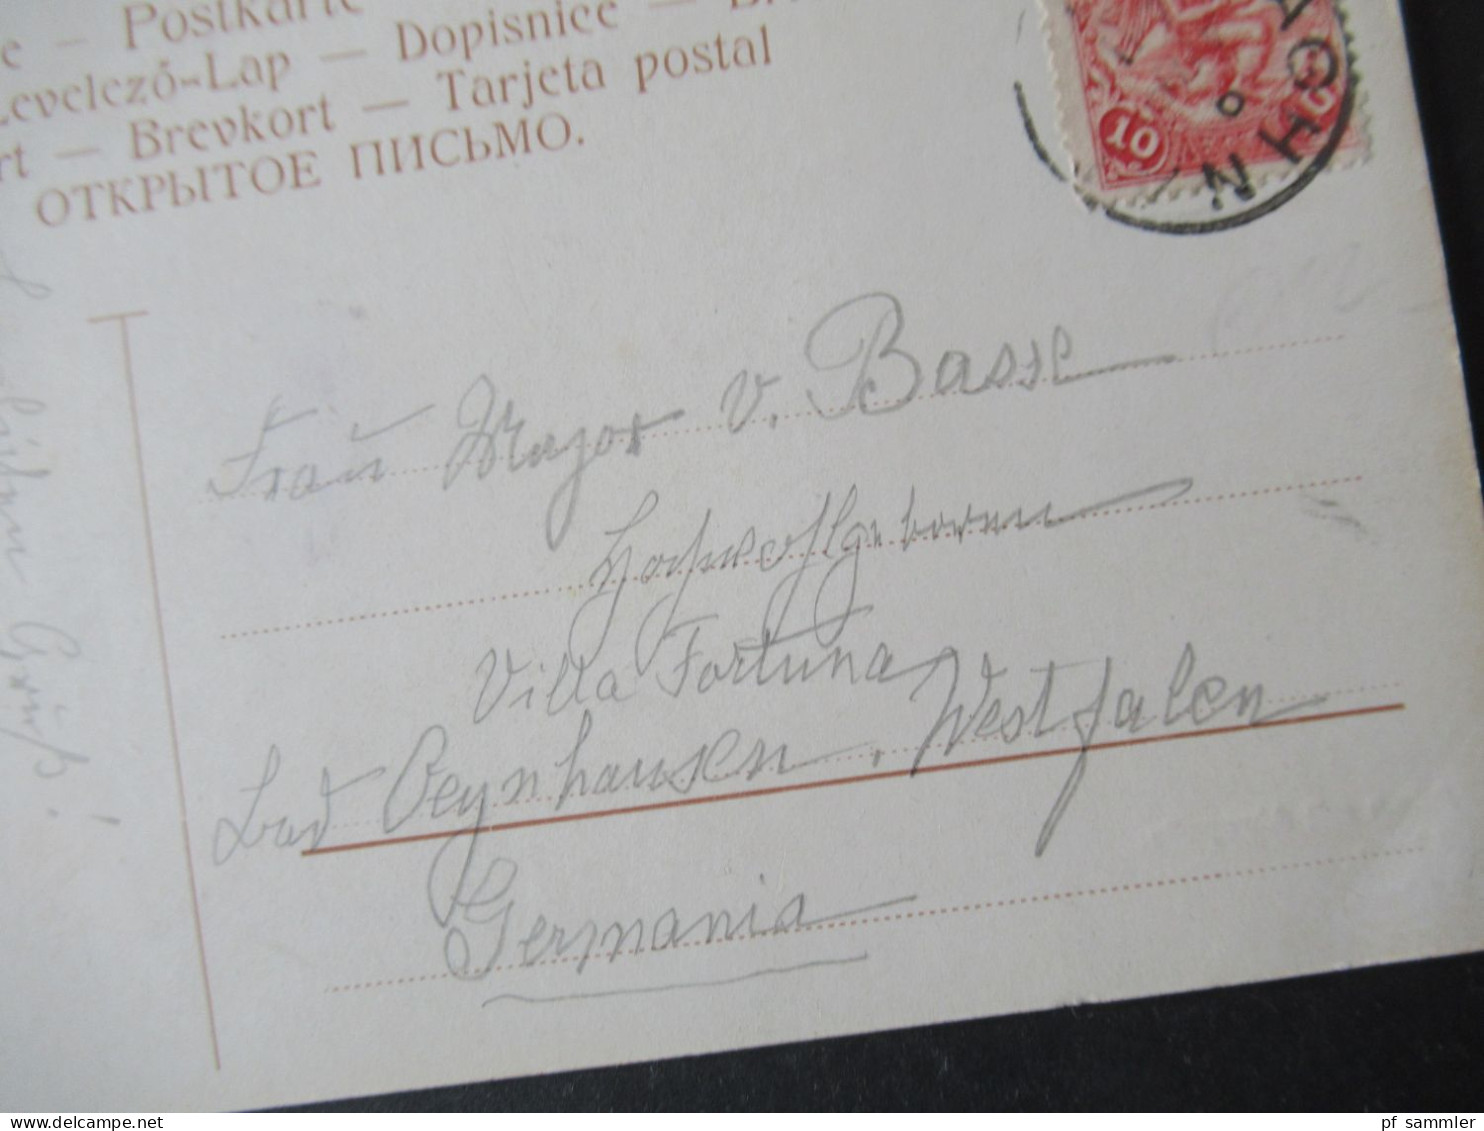 e – Postkarte
Levelező-Lap – Dopisnice –
rt – Brevkort – Tarjeta postal
ОТКРЫТОЕ ПИСЬМО.
10
Frau Major v. Basse
Hochwohlgeboren
Villa Fortuna
Bad Oeynhausen, Westfalen
Germania
Gruß!
pf sammler